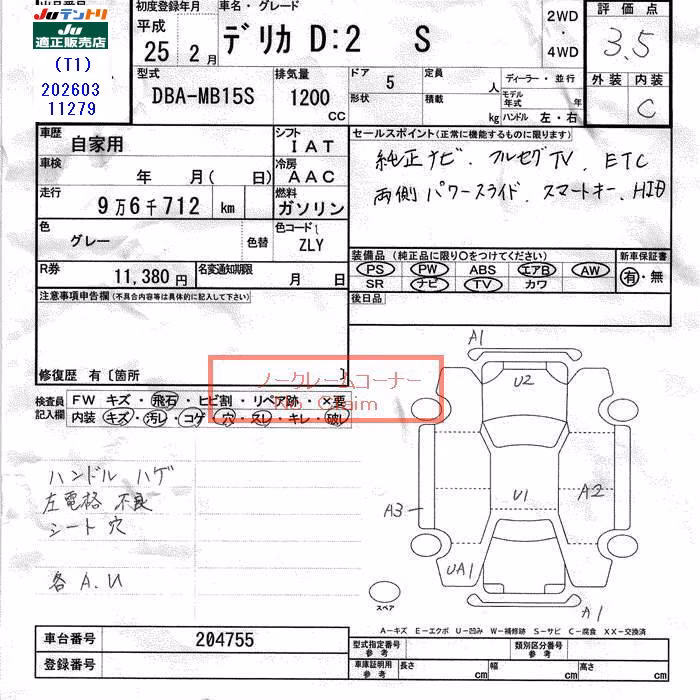 出品番号
初度登録年月
車名・グレード
評価点
Juテントリ
Ju適正販売店
平成
25 2月
デリカ D:2 S
2WD
・
4WD
3.5
(T1)
202603
11279
外装 内装
C
型式
DBA-MB15S
排気量
1200
cc
ドア 5
定員 人
ディーラー・並行
形状
積載 kg
モデル年式 年
ハンドル 左・右
車歴
自家用
シフト
IAT
セールスポイント(正常に機能するものに限ります)
車検
年 月( 日)
冷房
AAC
純正ナビ、フルセグTV、ETC
両側パワースライド、スマートキー、HID
走行
9万6千712 km
燃料
ガソリン
色
グレー
色替
色コード
ZLY
装備品 (純正品に限り○をつけてください)
新車保証書
PS PW ABS エアB AW
SR ナビ TV カワ
有・無
R券
11,380円
名変通知期限
月 日
後日品
注意事項申告欄(不具合内容等は具体的に記入して下さい)
修復歴 有〔箇所 〕
ノークレームコーナー
No Claim
検査員
記入欄
FW キズ・飛石・ヒビ割・リペア跡・×要
内装 キズ・汚レ・コゲ・穴・スレ・キレ・破レ
ハンドル ハゲ
左電格 不良
シート穴
各A.U
A1
U2
U1
A2
A3
UA1
A1
スペア
A-キズ E-エクボ U-凹み W-補修跡 S-サビ C-腐食 XX-交換済
車台番号
204755
型式指定番号
参考
類別区分番号
参考
登録番号
車庫証明用
参考
長さ cm
幅 cm
高さ cm